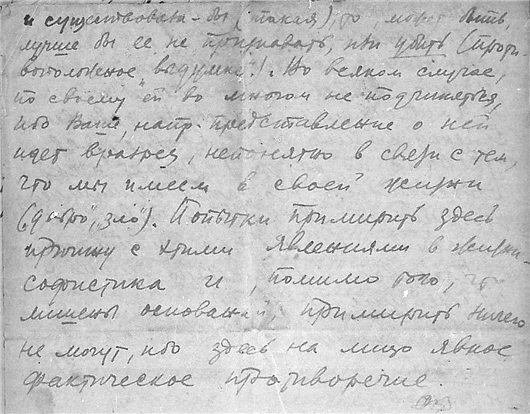 и существовала-бы (такая), то может быть,
лучше бы ее не признавать, или убить (проти-
воположное „выдумке“)! Во всяком случае,
по своему ей во многом не подчиняться,
ибо Ваше, напр. представление о ней
идет вразрез, непонятно в связи с тем,
что мы имеем в своей жизни
(„добро“, „зло“). Попытки примирить здесь
причину с этими явлениями в жизни -
софистика и, помимо того, что
лишены оснований, примирить ничего
не могут, ибо здесь на лицо явное
фактическое противоречие.